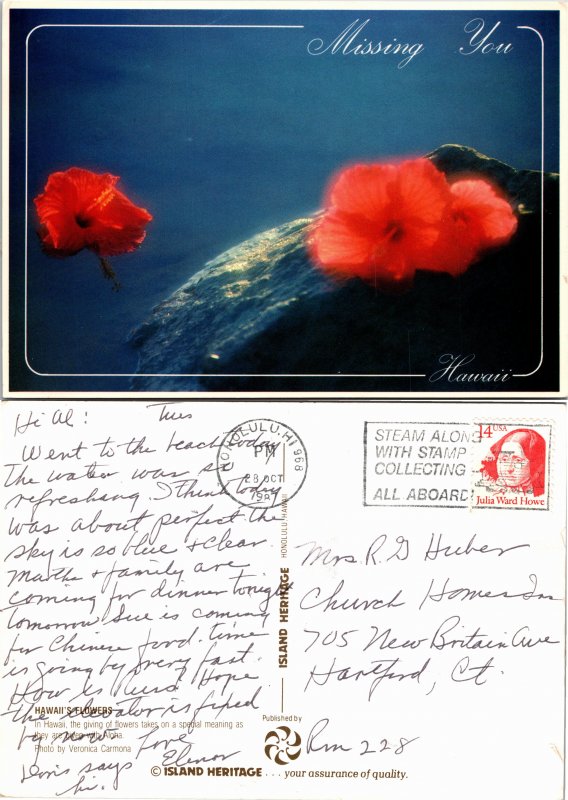 Missing You
Hawaii
Hi Al: Tues
Went to the beach today
The water was so
refreshing. I think today
was about perfect the
sky is so blue & clear.
Martha & family are
coming for dinner tonight
tomorrow Sue is coming
for Chinese food. time
is going by very fast.
How is Hope
the elevator is fixed
by now. Love
Elenor
Doris says
hi.
HAWAII'S FLOWERS
In Hawaii, the giving of flowers takes on a special meaning as
they are given with Aloha.
Photo by Veronica Carmona
HONOLULU, HI 968
PM
28 OCT
STEAM ALONG
WITH STAMP
COLLECTING
ALL ABOARD
14 USA
Julia Ward Howe
HONOLULU, HAWAII
ISLAND HERITAGE
Mrs R. G Huber
Church Homes Inc
705 New Britain Ave
Hartford, Ct.
Rm 228
Published by
© ISLAND HERITAGE . . . your assurance of quality.